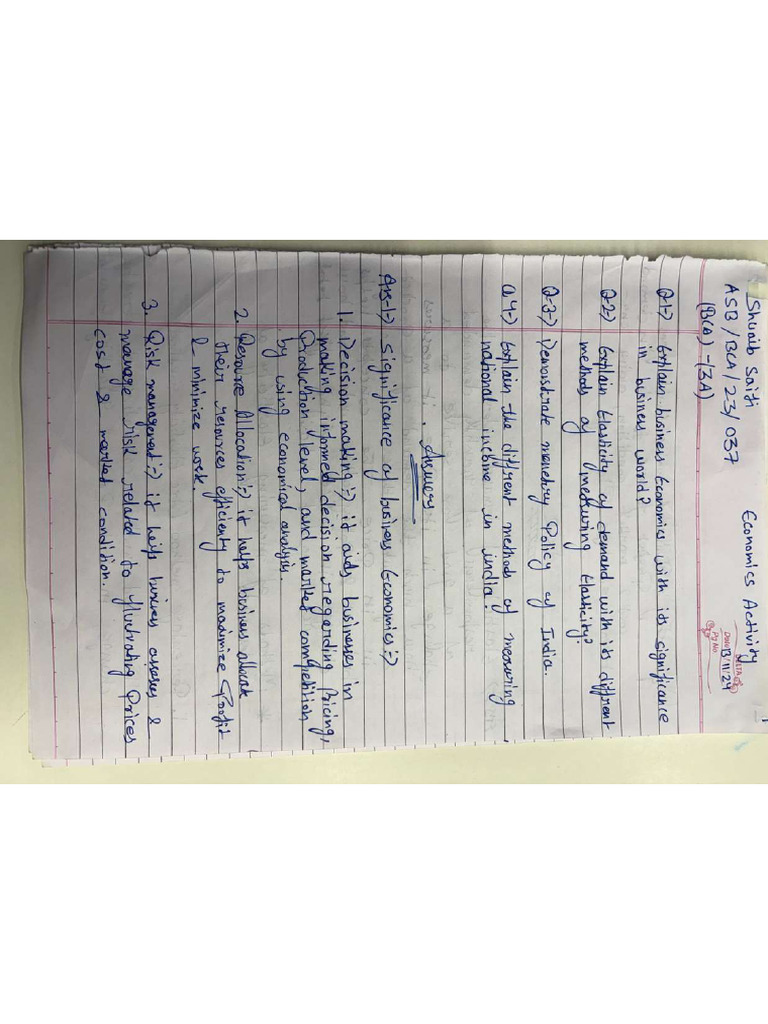 Shuaib Saifi Economics Activity
ASB/BCA/23/037
(BCA)-(3A)
DELTA Pg No.
Date 13/11/24
Q-1→ Explain business Economics with its significance
in business world?
Q-2→ Explain Elasticity of demand with its different
methods of measuring Elasticity?
Q-3→ Demonstrate monetary Policy of India.
Q.4→ Explain the different methods of measuring
national income in india?
Answers
Ans-1→ Significance of business Economics:→
1. Decision making:→ it aids businesses in
making informed decision regarding Pricing,
Production level, and market competition
by using economical analysis.
2. Resource Allocation:→ it helps business allocate
their resources efficienty to maximize Profit
& minimize
3. Risk management:→ it helps assess &
manage risk related to Prices
cost & market condition.